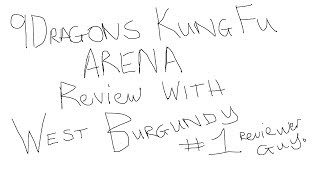 9DRAGONS KUNG FU
ARENA
REVIEW WITH
WEST BURGUNDY
#1 REVIEWER
GUY.